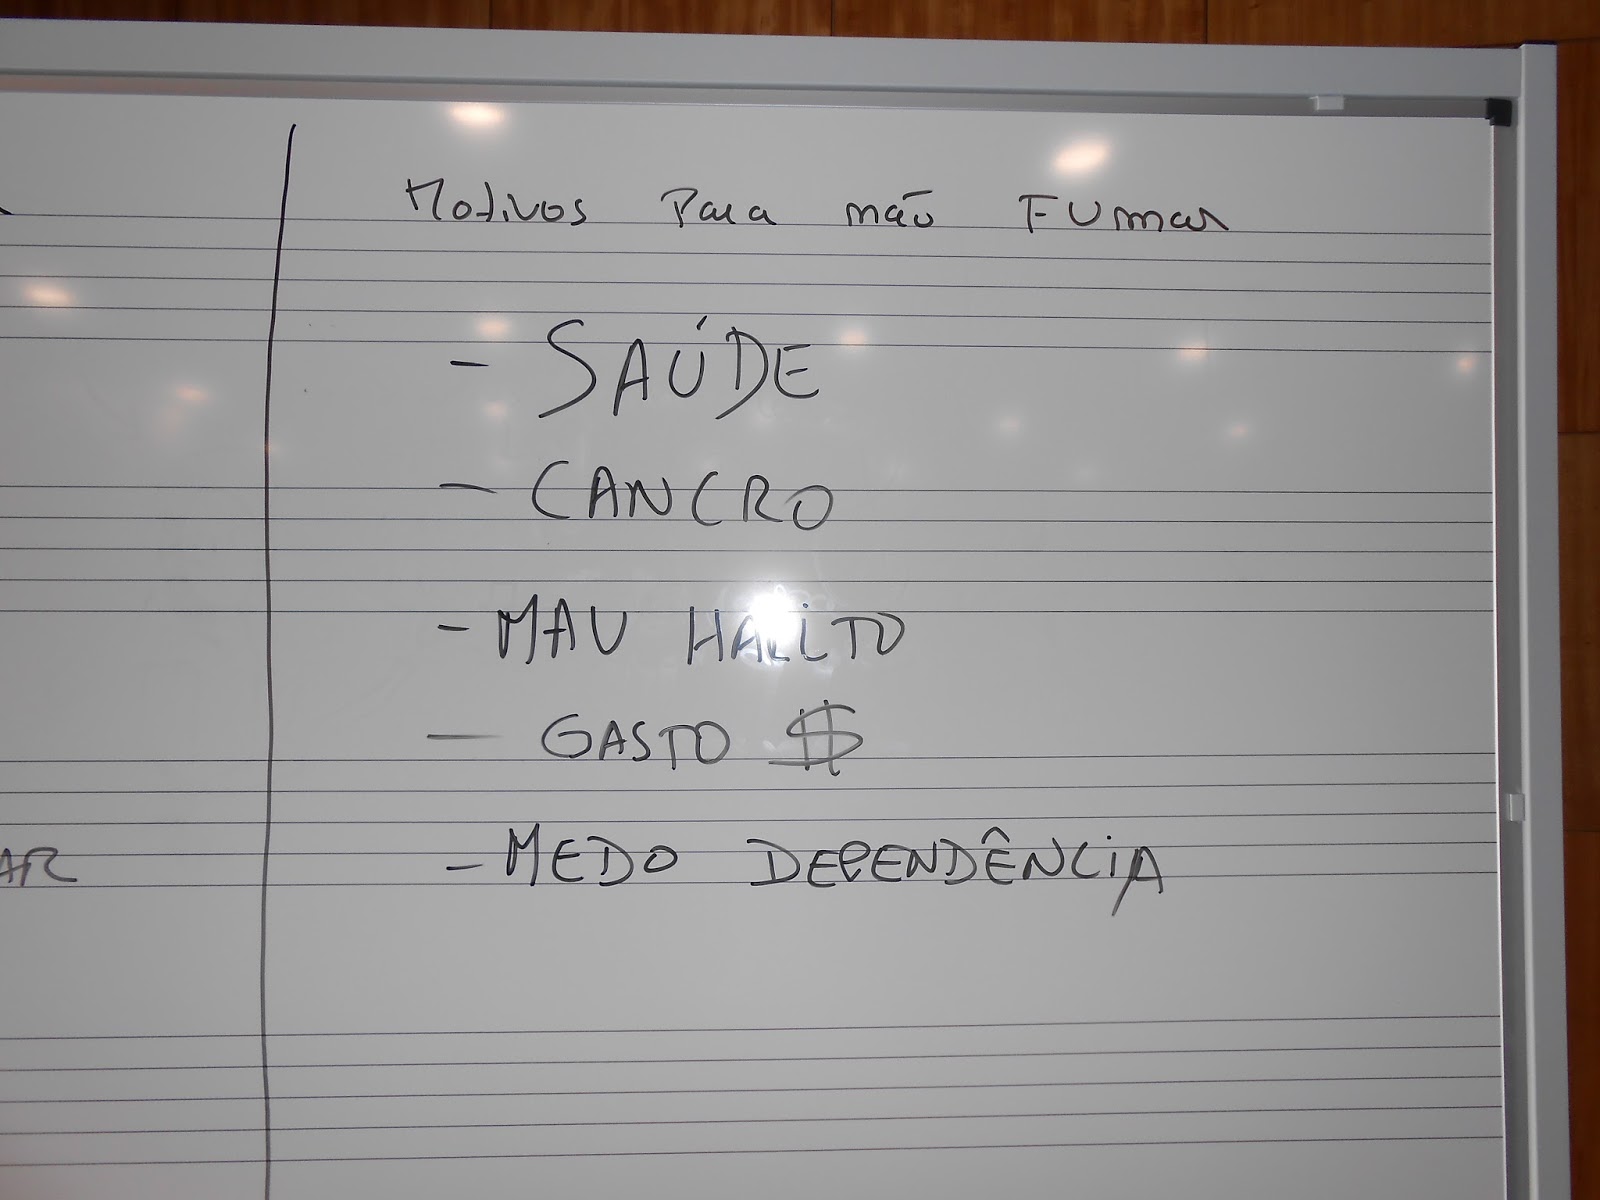 Motivos Para não Fumar
- SAÚDE
- CANCRO
- MAU HALITO
- GASTO $
- MEDO DEPENDÊNCIA
AR